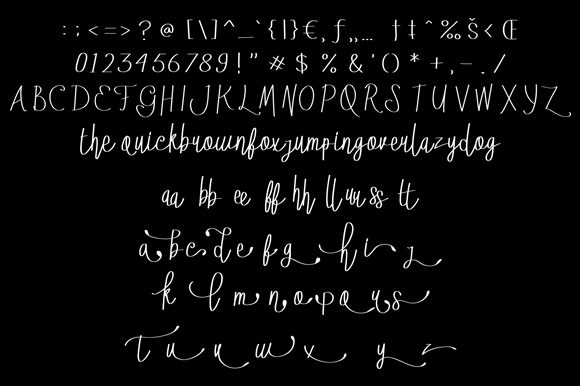 : ; < = > ? @ [ \ ] ^ _ ` { | } € , ƒ „ … † ‡ ˆ ‰ Š ‹ Œ
0123456789!" # $ % & ' ( ) * + , - . /
ABCDEFGHIJKLMNOPQRSTUVWXYZ
the quickbrownfoxjumpingoverlazydog
aa bb ee ff hh ll rr ss tt
a b c d e f g h i j
k l m n o p q r s
t u v w x y